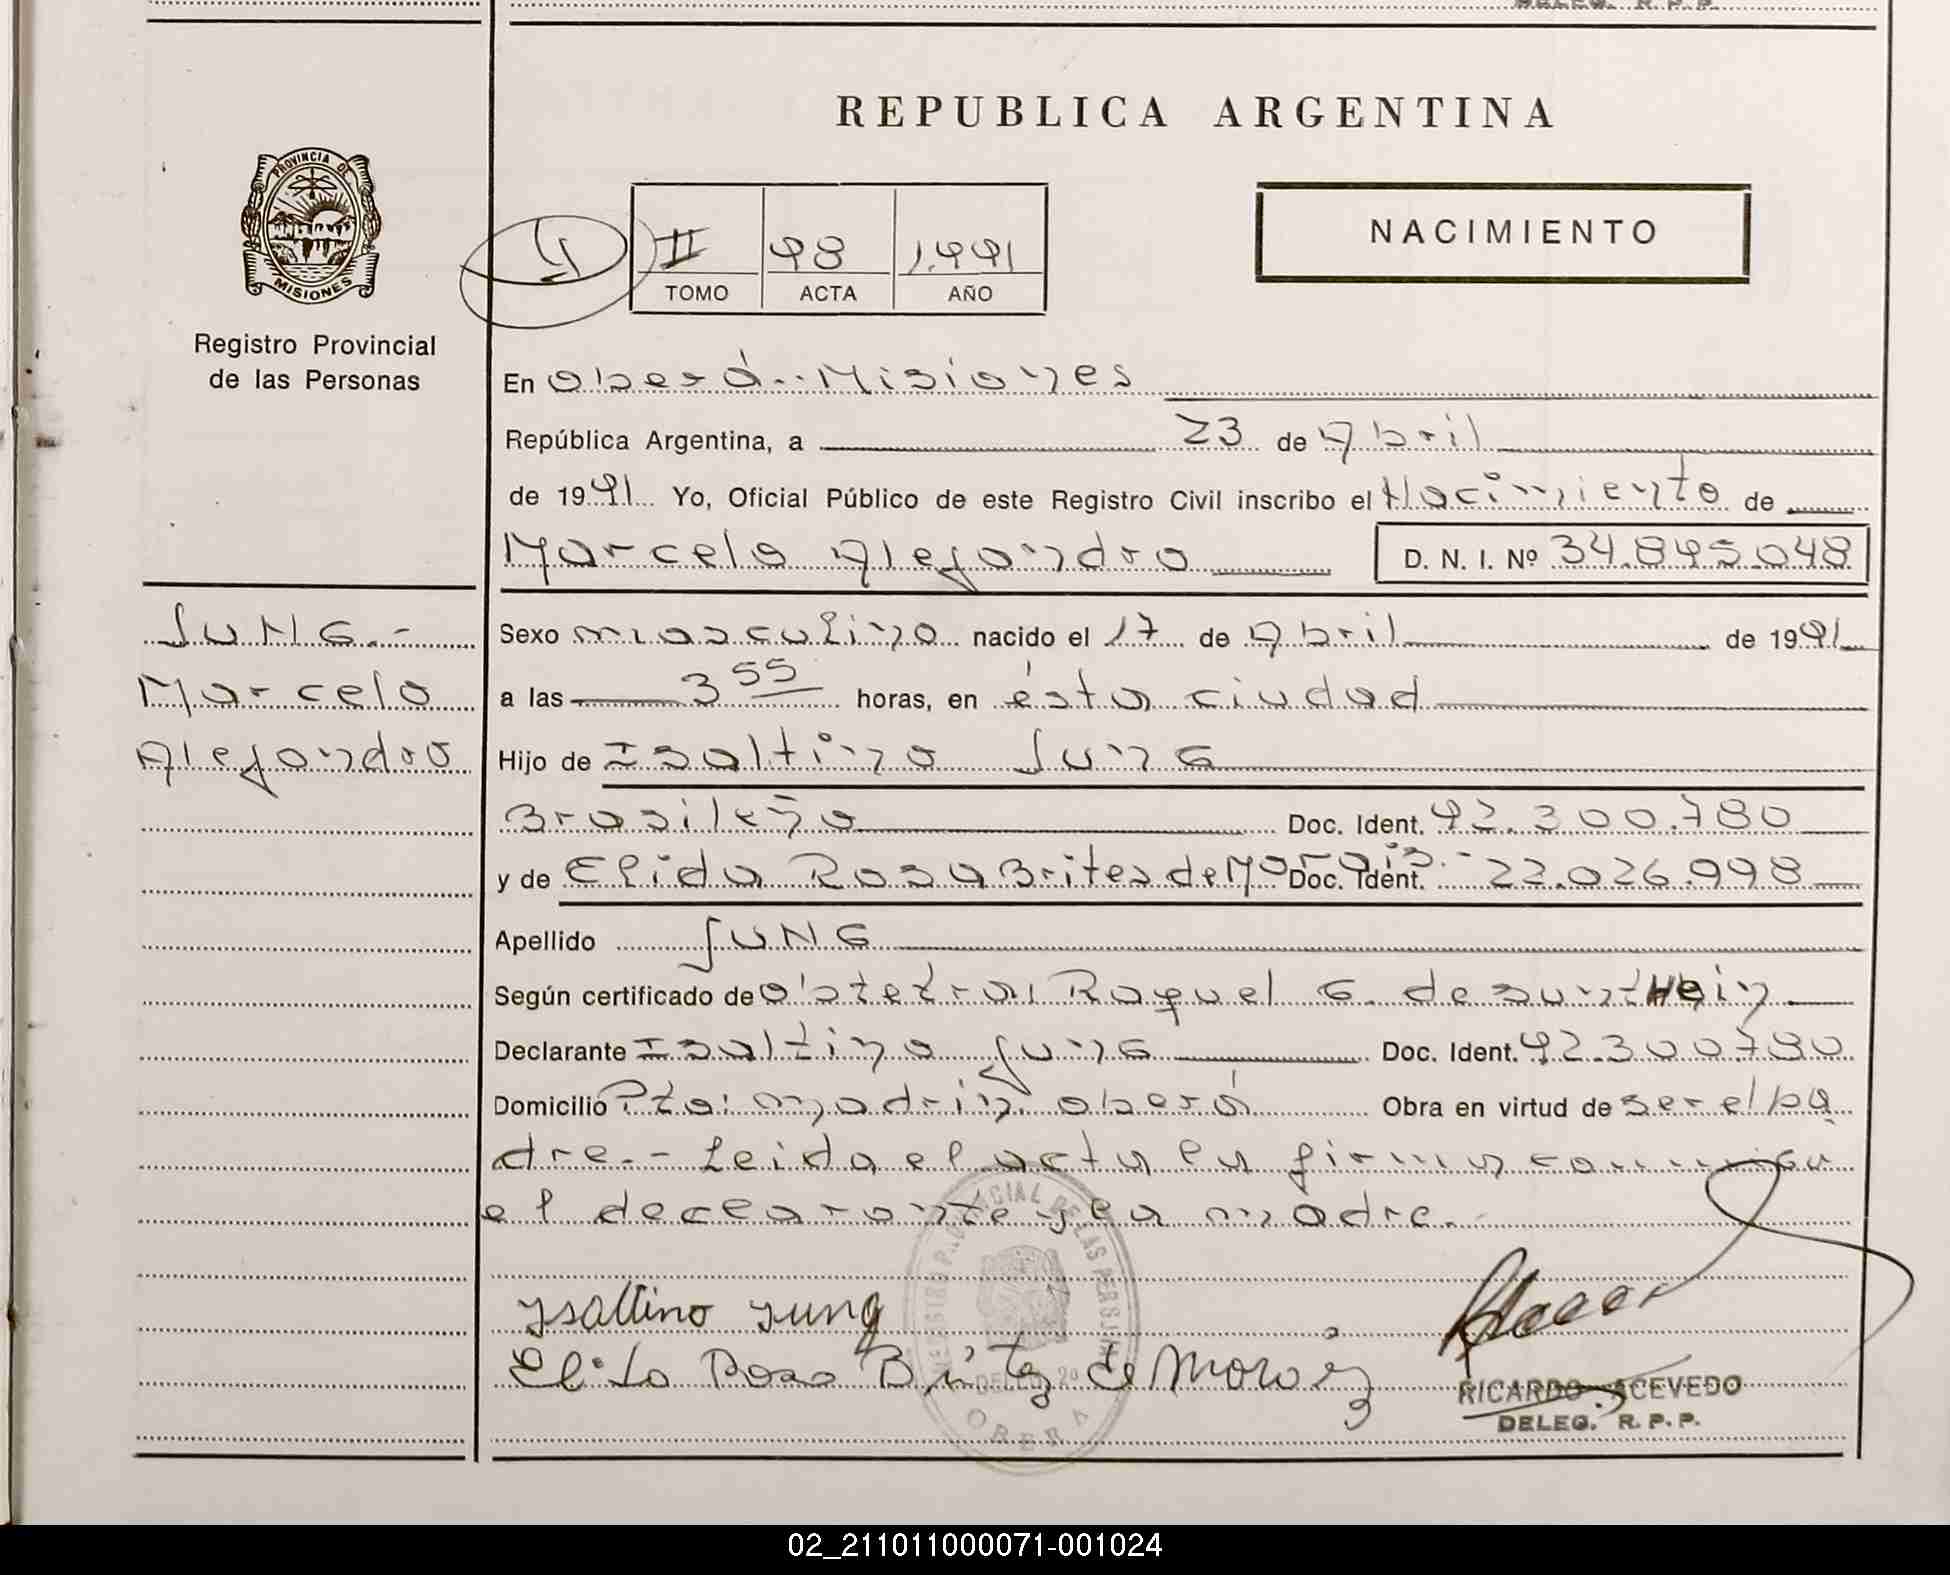 DELEG. R. P. P.
REPUBLICA ARGENTINA
PROVINCIA DE
MISIONES
Registro Provincial
de las Personas
II 98 1.991
TOMO ACTA AÑO
NACIMIENTO
En Oberá - Misiones
República Argentina, a 23 de Abril
de 1991 Yo, Oficial Público de este Registro Civil inscribo el Nacimiento de
Marcelo Alejandro D. N. I. Nº 34.895.048
JUNG.-
Marcelo
Alejandro
Sexo masculino nacido el 17 de Abril de 1991
a las 3 55 horas, en ésta ciudad
Hijo de Isaltino Jung
Brasileño Doc. Ident. 92.300.780
y de Elida Rosa Britez de Morais.- Doc. Ident. 22.026.998
Apellido JUNG
Según certificado de Obstetra, Raquel G. de Sunthein
Declarante Isaltino Jung Doc. Ident. 92.300.780
Domicilio Pto: madrin. oberá Obra en virtud de ser el pa
dre.- Leida el acta la firman conmigo
el declarante y la madre.-
REGISTRO PROVINCIAL DE LAS PERSONAS
DELEG. 2ª
OBERA
Ysaltino Jung
Elida Rosa Britez de Morais
RICARDO ACEVEDO
DELEG. R. P. P.
02_211011000071-001024